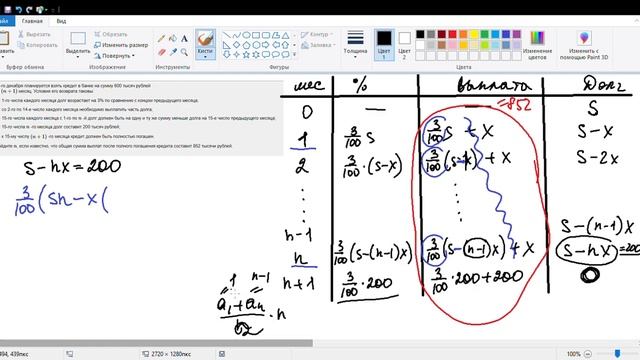 Файл Главная Вид
Вырезать
Копировать
Обрезать
Изменить размер
Повернуть
Выделить
Кисти
Контур
Заливка
Толщина
Цвет 1
Цвет 2
Изменение цветов
Изменить с помощью Paint 3D
Изображение
Инструменты
Фигуры
Цвета
-го декабря планируется взять кредит в банке на сумму 600 тысяч рублей
(n + 1) месяц. Условия его возврата таковы:
1-го числа каждого месяца долг возрастает на 3% по сравнению с концом предыдущего месяца;
со 2-го по 14-е число каждого месяца необходимо выплатить часть долга;
15-го числа каждого месяца с 1-го по n-й долг должен быть на одну и ту же сумму меньше долга на 15-е число предыдущего месяца;
15-го числа n-го месяца долг составит 200 тысяч рублей;
к 15-му числу (n + 1)-го месяца кредит должен быть полностью погашен.
йдите n, если известно, что общая сумма выплат после полного погашения кредита составит 852 тысячи рублей.
мес % Выплата Долг
=852
0 — — S
1 3/100 S 3/100 S + x S-x
2 3/100·(S-x) 3/100(S-x) + x S-2x
S - nx = 200
3/100(Sn - x(
n-1 S-(n-1)x
n 3/100(S-(n-1)x) 3/100(S-(n-1)x)+x S-nx=200
n+1 3/100·200 3/100·200+200 0
1 n-1
a₁+aₙ/2 · n
494, 439пкс
2720 × 1280пкс
100%